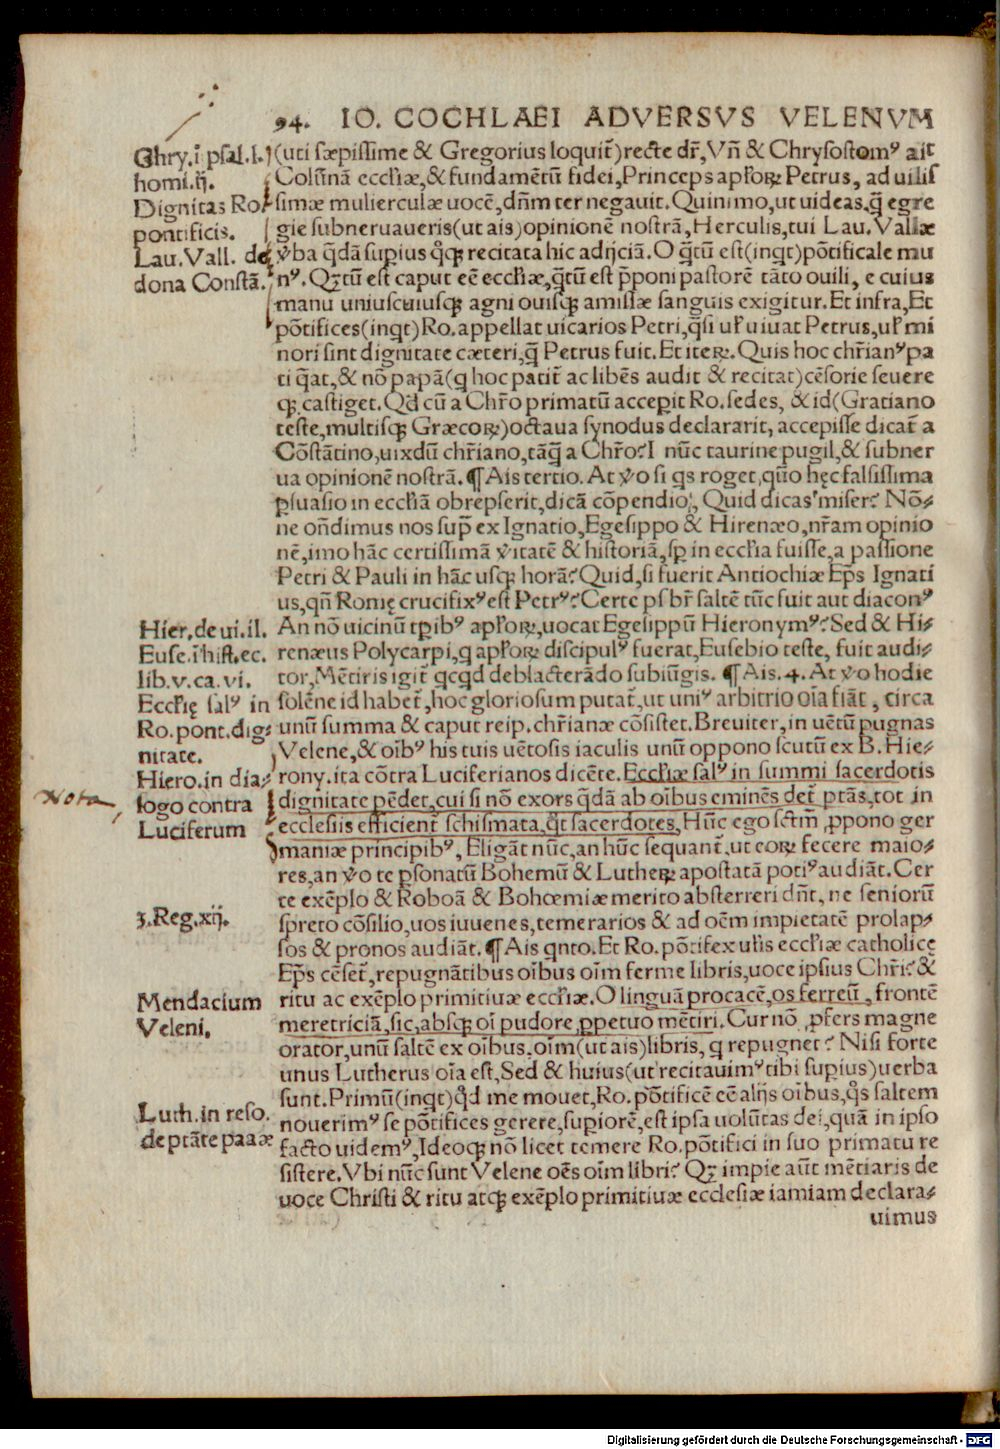 94. IO. COCHLAEI ADVERSVS VELENVM
Chry.ĩ psal.l.
homi.ij.
Dignitas Ro.
pontificis.
Lau.Vall. de
dona Constã.
(uti sæpissime & Gregorius loquit᷑)recte dr̃,Vñ & Chrysostomꝰ ait
Colũnã eccl'iæ,&fundamẽtũ fidei,Princeps apl'oꝝ Petrus, ad uilis
simæ mulierculæ uocẽ,dñm ter negauit. Quinimo,ut uideas,q̃ egre
gie subneruaueris(ut ais)opinionẽ nostrã,Herculis,tui Lau. Vallæ
v̉ba q̃dã supius q̊qꝫ recitata hic adijciã.O q̃tũ est(inqt)põtificale mu
nꝰ.Qꝫtũ est caput eẽ eccl'iæ,q̃tũ est p̃poni pastorẽ tãto ouili, e cuius
manu uniuscuiusqꝫ agni ouisqꝫ amissæ sanguis exigitur.Et infra,Et
põtifices(inqt)Ro.appellat uicarios Petri,q̃si ul' uiuat Petrus,ul' mi
nori sint dignitate cæteri,q̃ Petrus fuit.Et iteꝝ.Quis hoc chr̃ianꝰpa
ti q̃at,& nõ papã(q hoc patit᷑ ac libẽs audit & recitat)cẽsorie seuere
qꝫ castiget.Qd̃ cũ a Chr̃o primatũ acceꝑit Ro.sedes, & id(Gratiano
teste,multisqꝫ Græcoꝝ)octaua synodus declararit, accepisse dicat᷑ a
Cõstãtino,uixdũ chr̃iano,tãq̃ a Chr̃o?I nũc taurine pugil,& subner
ua opinionẽ nostrã.¶Ais tertio.At v̉o si qs roget,quõ hęc falsissima
ꝑsuasio in eccl'iã obrepserit,dicã cõpendio, Quid dicas miser? Nõ⸗
ne oñdimus nos sup̃ ex Ignatio,Egesippo & Hirenæo,nr̃am opinio
nẽ,imo hãc certissimã v̉itatẽ & historiã,sꝑ in eccl'ia fuisse,a passione
Petri & Pauli in hãc usqꝫ horã?Quid,si fuerit Antiochiæ Ep̃s Ignati
us,qñ Romę crucifixꝰest Petrꝰ?Certe ps br̃ saltẽ tũc fuit aut diaconꝰ
Hier.de ui.il.
Euse.ĩ hist.ec.
lib.v.ca.vi.
Eccl'ię salꝰ in
Ro.pont.dig⸗
nitate.
Hiero.in dia⸗
logo contra
Luciferum
Nota
An nõ uicinũ tꝑibꝰ apl'oꝝ,uocat Egesippũ Hieronymꝰ?Sed & Hi⸗
renæus Polycarpi,q apl'oꝝ discipulꝰ fuerat,Eusebio teste, fuit audi⸗
tor,Mẽtiris igit᷑ qcqd deblacterãdo subiũgis. ¶Ais.4. At v̉o hodie
solẽne id habet᷑,hoc gloriosum putat᷑,ut uniꝰ arbitrio oĩa fiãt, circa
unũ summa & caput reip.chr̃ianæ cõsistet.Breuiter,in uẽtũ pugnas
Velene,& oĩbꝰ his tuis uẽtosis iaculis unũ oppono scutũ ex B.Hie⸗
rony.ita cõtra Luciferianos dicẽte.Eccl'iæ salꝰ in summi sacerdotis
dignitate pẽdet,cui si nõ exors q̃dã ab oĩbus eminẽs det᷑ ptãs,tot in
ecclesiis efficient᷑ schismata,q̃t sacerdotes,Hũc ego sctm̃ ꝓpono ger
maniæ principibꝰ, Eligãt nũc,an hũc sequant᷑,ut eoꝝ fecere maio⸗
res,an v̉o te ꝑsonatũ Bohemũ & Lutheꝝ apostatã potiꝰ audiãt.Cer
te exẽplo & Roboã & Bohœmiæ merito absterreri dñt, ne seniorũ
3.Reg.xij.
spreto cõsilio,uos iuuenes,temerarios & ad oẽm impietatẽ prolap⸗
sos & pronos audiãt.¶Ais qnto.Et Ro.põtifex ul'is eccl'iæ catholicę
Ep̃s cẽset᷑,repugnãtibus oĩbus oĩm ferme libris,uoce ipsius Chr̃i?&
Mendacium
Veleni.
ritu ac exẽplo primitiuæ eccl'iæ.O linguã procacẽ,os ferreũ, frontẽ
meretriciã,sic,absqꝫ oĩ pudore ꝑpetuo mẽtiri. Cur nõ ꝓfers magne
orator,unũ saltẽ ex oĩbus.oĩm(ut ais)libris, q repugnet? Nisi forte
unus Lutherus oĩa est,Sed & huius(ut recitauimꝰtibi supius)uerba
Luth.in reso.
de ptãte papæ
sunt.Primũ(inqt)qd̃ me mouet,Ro.põtificẽ eẽ alijs oĩbus,q̊s saltem
nouerimꝰ se põtifices gerere,supiorẽ,est ipsa uolũtas dei,quã in ipso
facto uidemꝰ,Ideoqꝫ nõ licet temere Ro.põtifici in suo primatu re
sistere.Vbi nũc sunt Velene oẽs oĩm libri? Qꝫ impie aũt mẽtiaris de
uoce Christi & ritu atqꝫ exẽplo primitiuæ ecclesiæ iamiam declara⸗
uimus
Digitalisierung gefördert durch die Deutsche Forschungsgemeinschaft - DFG